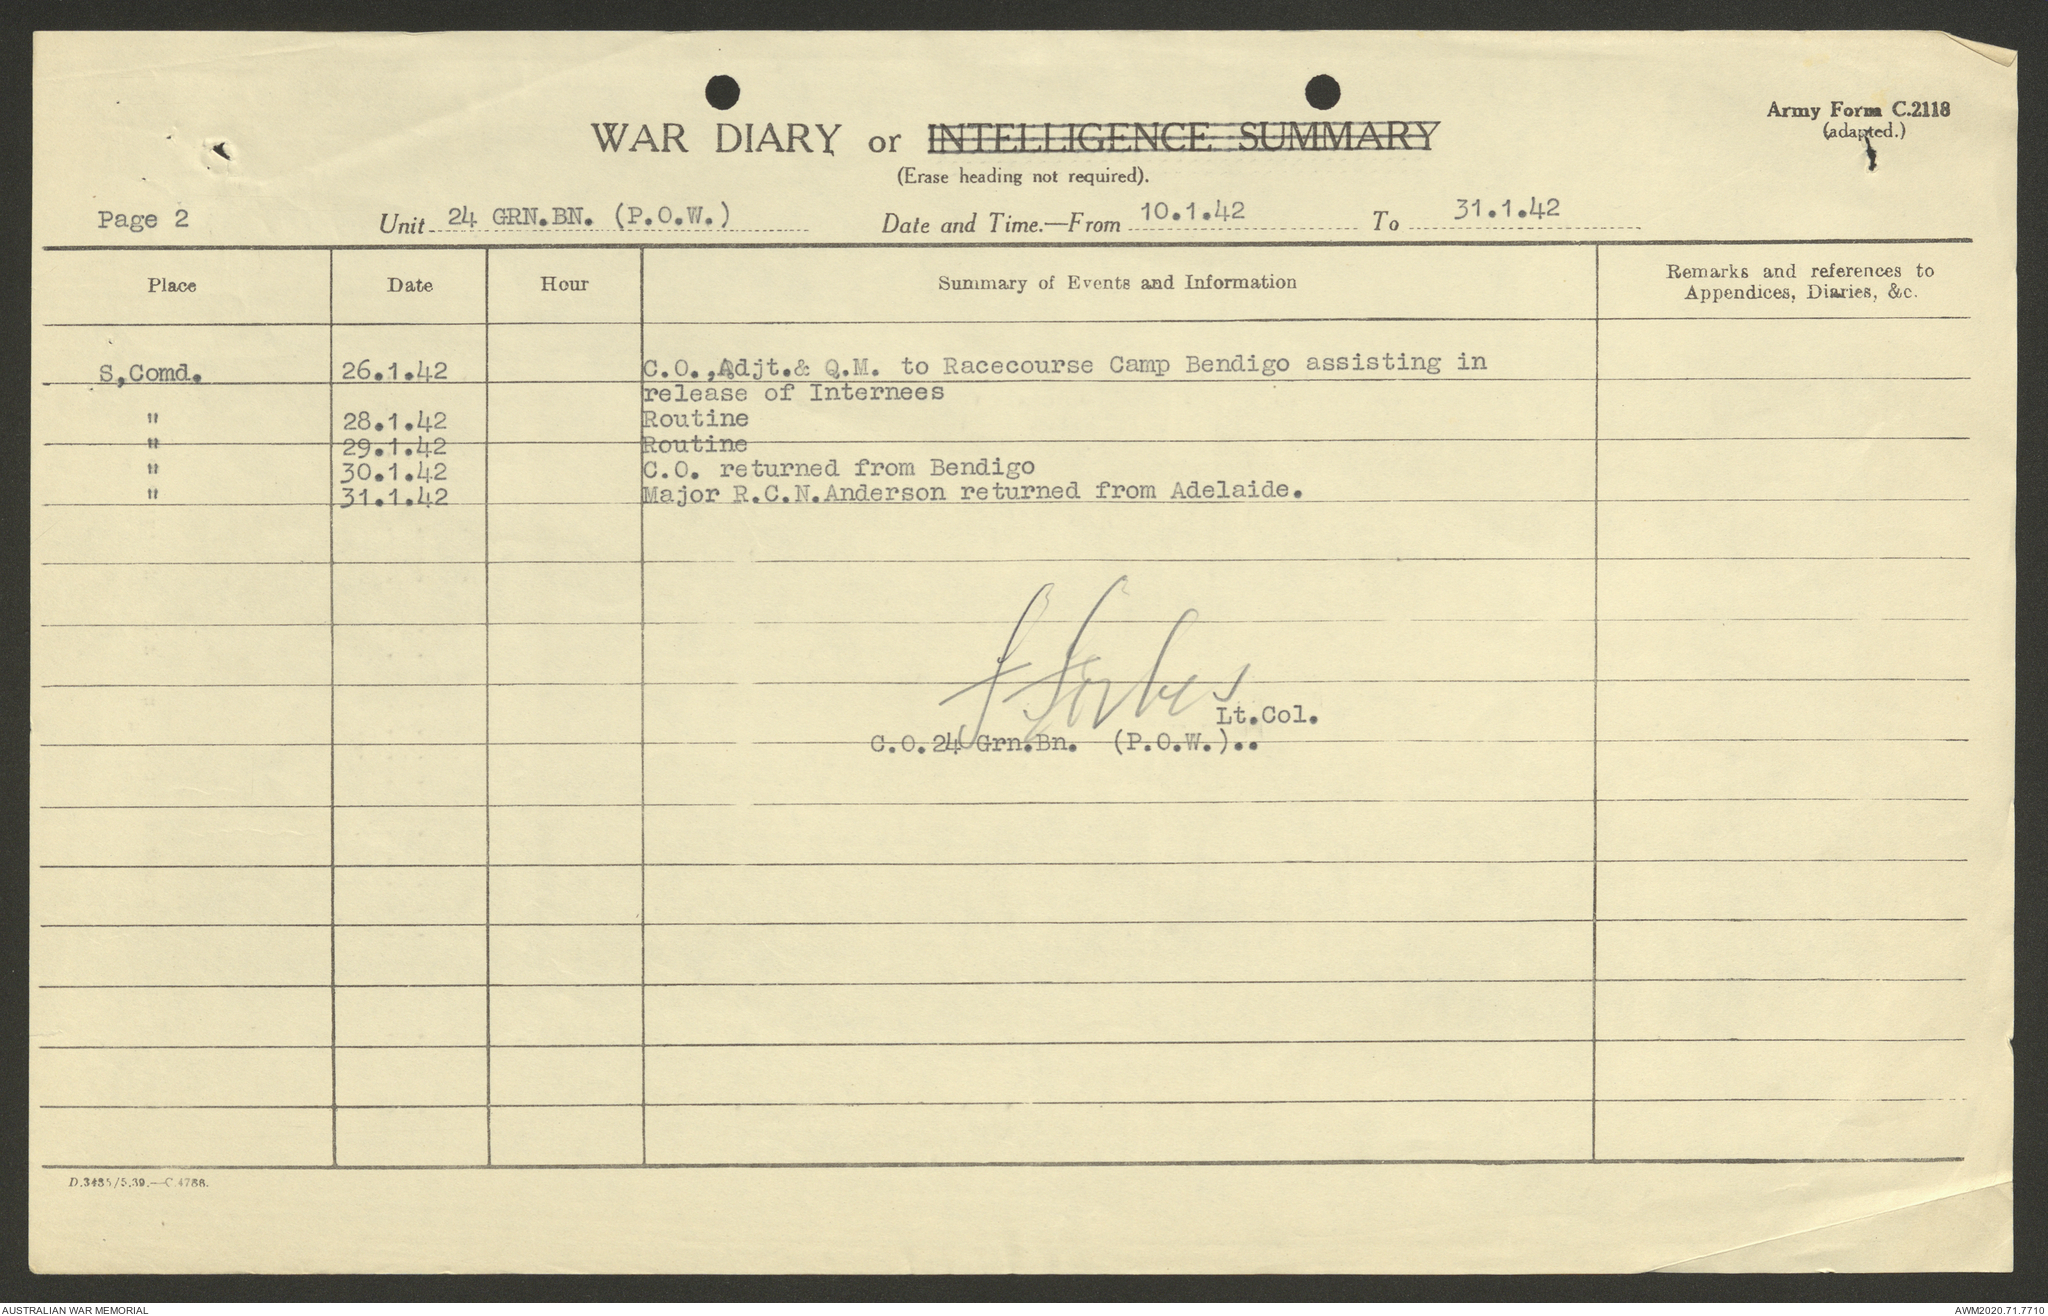 Army Form C.2118
(adapted.)
WAR DIARY or INTELLIGENCE SUMMARY
(Erase heading not required).
Page 2 Unit 24 GRN.BN. (P.O.W.) Date and Time.—From 10.1.42 To 31.1.42
Place Date Hour Summary of Events and Information Remarks and references to
Appendices, Diaries, &c.
S,Comd. 26.1.42 C.O.,Adjt.& Q.M. to Racecourse Camp Bendigo assisting in
release of Internees
" 28.1.42 Routine
" 29.1.42 Routine
" 30.1.42 C.O. returned from Bendigo
" 31.1.42 Major R.C.N.Anderson returned from Adelaide.
Forbes
Lt.Col.
C.O.24 Grn.Bn. (P.O.W.)..
D.3435/5.39.—C.4786.
AUSTRALIAN WAR MEMORIAL AWM2020.71.7710